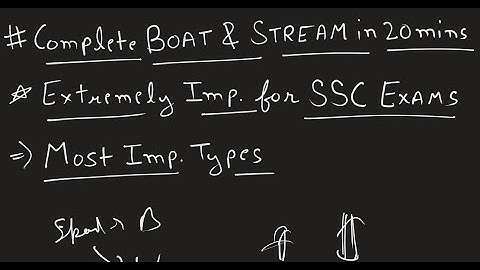 # COMPLETE BOAT & STREAM in 20 mins
* Extremely Imp. for SSC EXAMS
⇒ MOST IMP. TYPES
B